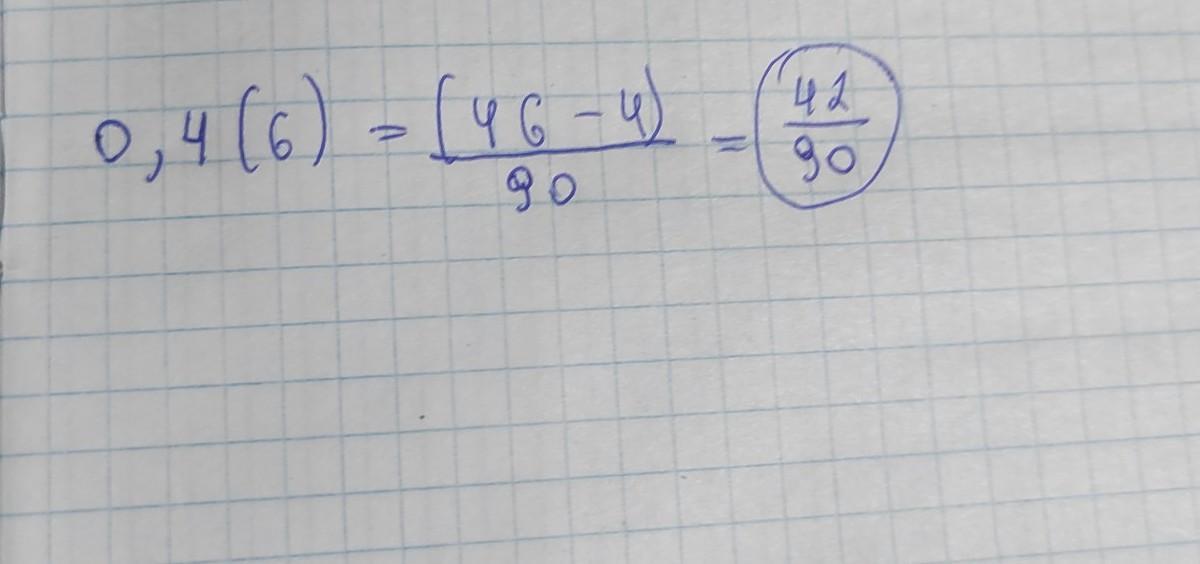 0,4(6) = (46-4)/90 = 42/90